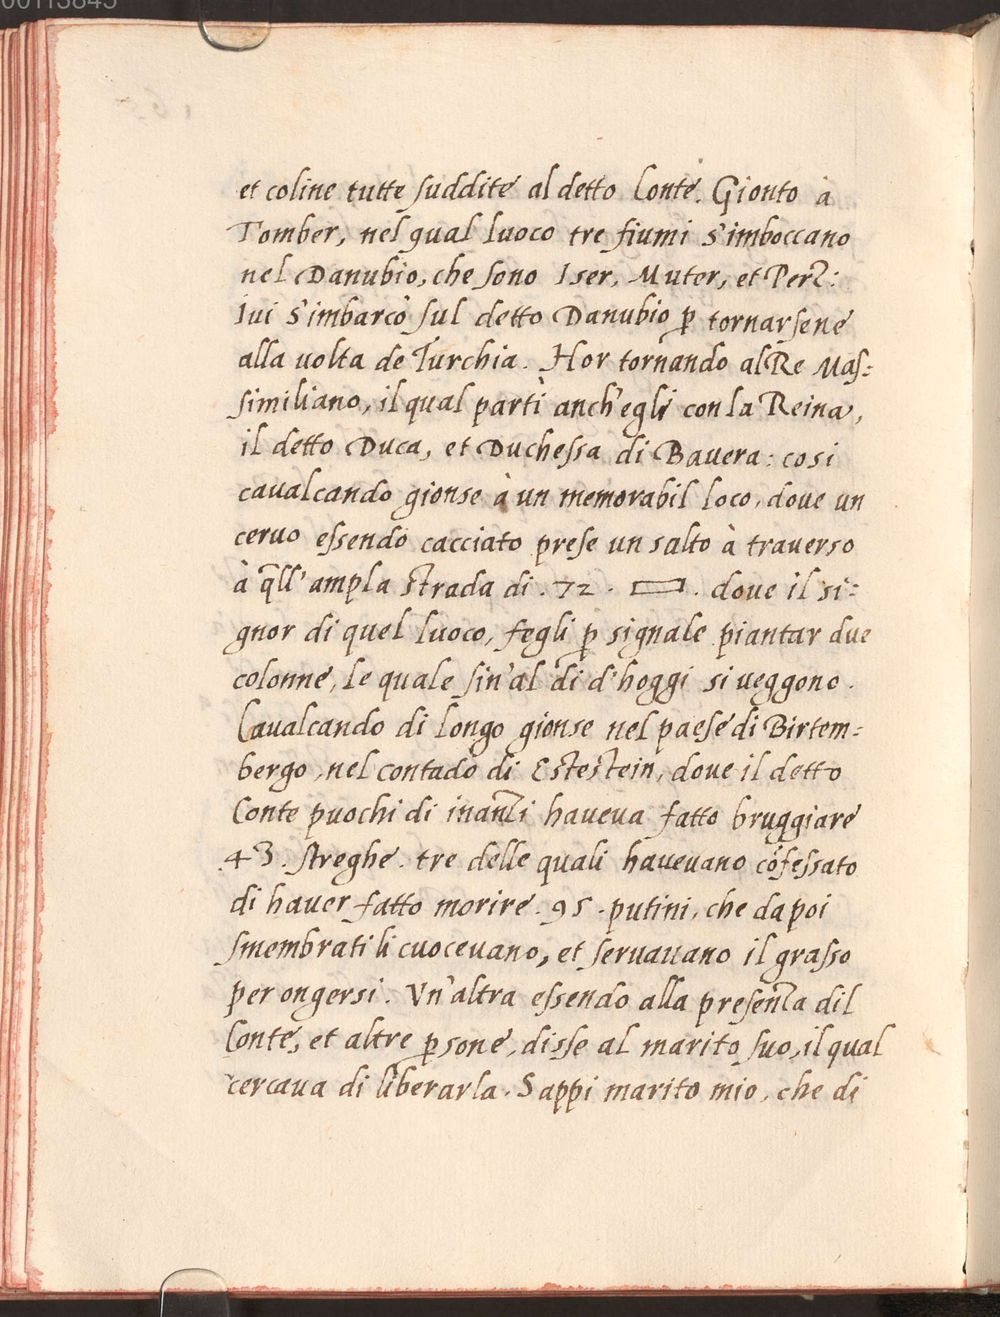 00113845
et coline tutte suddite al detto Conte. Gionto à
Tomber, nel qual luoco tre fiumi s'imboccano
nel Danubio, che sono Iser, Muter, et Perz:
Iui s'imbarcò sul detto Danubio ꝑ tornarsene
alla uolta de Turchia. Hor tornando al Re Mas=
similiano, il qual partì anch'egli con la Reina,
il detto Duca, et Duchessa di Bauera: cosi
caualcando gionse à un memorabil loco, doue un
ceruo essendo cacciato prese un salto à trauerso
à q̃ll'ampla strada di .72. ▭. doue il si=
gnor di quel luoco, fegli ꝑ signale piantar due
colonne, le quale sin'al dì d'hoggi si ueggono.
Caualcando di longo gionse nel paese di Birtem=
bergo, nel contado di Estestein, doue il detto
Conte puochi dì inanzi haueua fatto bruggiare
.43. streghe. tre delle quali haueuano cõfessato
di hauer fatto morire .95. putini, che dapoi
smembrati li cuoceuano, et seruauano il grasso
per ongersi. Vn'altra essendo alla presenza dil
Conte, et altre ꝑsone, disse al marito suo, il qual
cercaua di liberarla. Sappi marito mio, che di